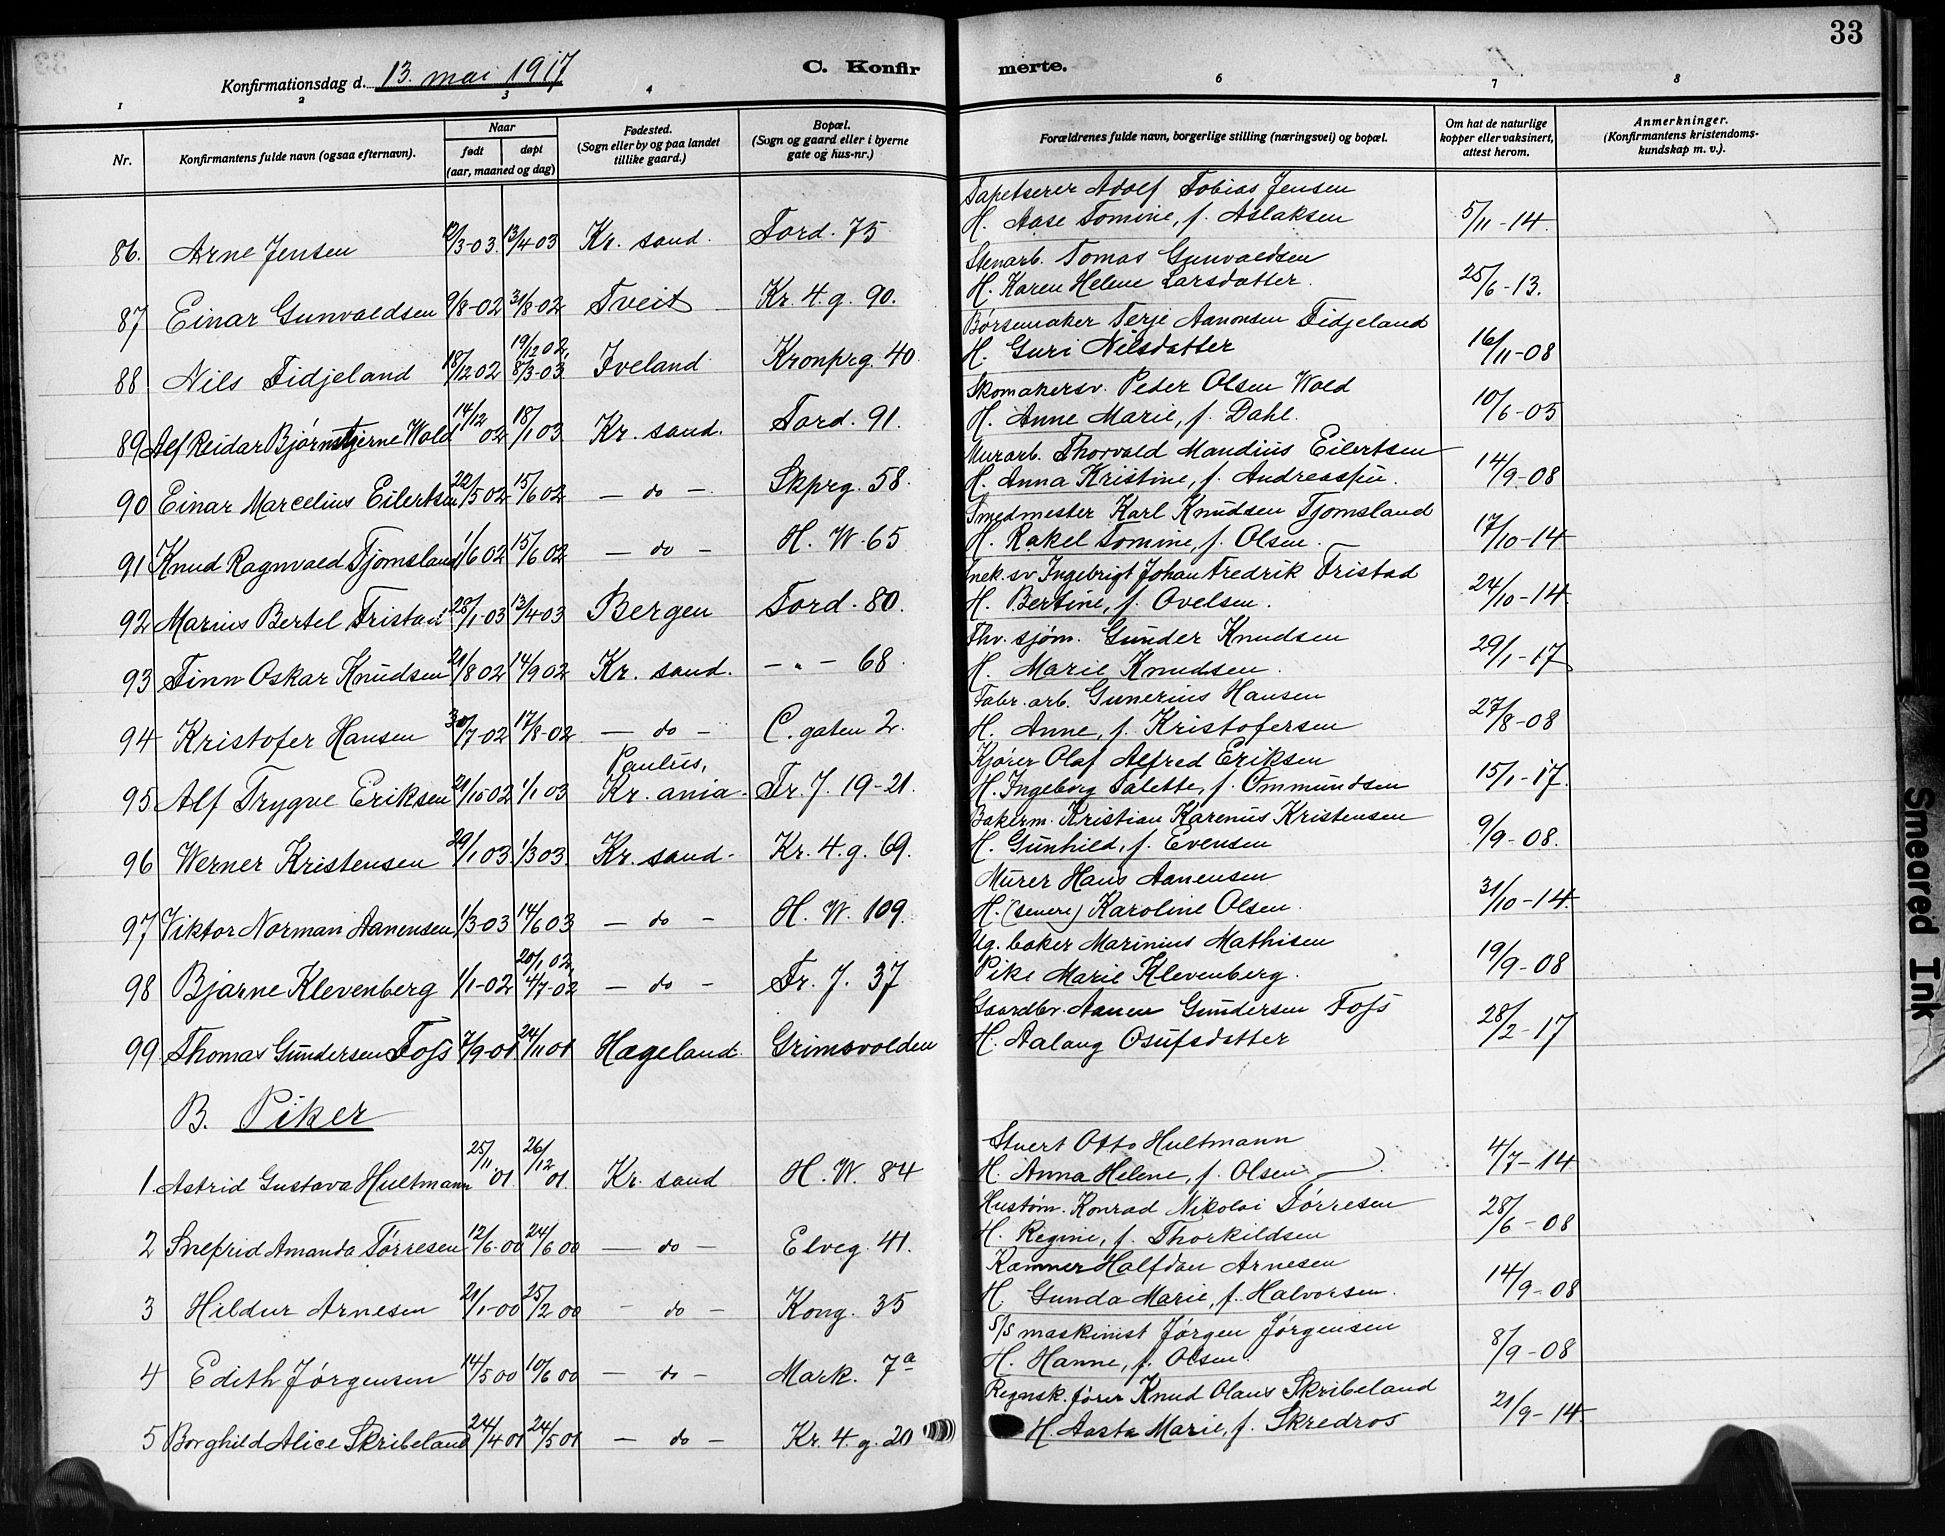 33
Konfirmationsdag d. 13. mai 1917
C. Konfirmerte.
1 2 3 4 6 7 8
Nr.
Konfirmantens fulde navn (ogsaa efternavn).
Naar
født
døpt
(aar, maaned og dag)
Fødested.
(Sogn eller by og paa landet
tillike gaard.)
Bopæl.
(Sogn og gaard eller i byerne
gate og hus-nr.)
Forældrenes fulde navn, borgerlige stilling (næringsvei) og bopæl.
Om hat de naturlige
kopper eller vaksinert,
attest herom.
Anmerkninger.
(Konfirmantens kristendoms-
kundskap m. v.).
Tapetserer Adolf Tobias Jensen
86. Arne Jensen 12/3-03. 13/4-03 Kr. sand. Tord. 75 H. Aase Tomine, f. Aslaksen 5/11-14.
Stenarb. Tomas Gunvaldsen
87 Einar Gunvaldsen 9/8-02 31/8-02 Tveit Kr. 4. g. 90. H. Karen Helene Larsdatter. 25/6-13.
Børsemaker Terje Aanonsen Fidjeland
88 Nils Fidjeland 18/12 02 19/12 02, 8/3-03 Iveland Kronprg. 40 H. Guri Nilsdatter 16/11-08
Skomakersv. Peder Olsen Wold
89 Alf Reidar Bjørnstjerne Wold 14/12 02 18/1 03 Kr. sand. Tord. 91. H. Anne Marie, f. Dahl. 10/6-05
Murarb. Thorvald Mandius Eilertsen
90 Einar Marcelius Eilertsen 22/5 02 15/6 02 – do – Skprg. 58. H. Anna Kristine, f. Andreassen. 14/9-08
Smedmester Karl Knudsen Tjomsland
91 Knud Ragnvald Tjomsland 1/6 02 15/6 02 – do – H. W. 65 H. Rakel Tomine, f. Olsen. 17/10-14
Snek. sv Ingebrigt Johan Fredrik Fristad
92 Marius Bertel Fristad 28/1-03 13/4-03 Bergen Tord. 80. H. Bertine, f. Ovelsen. 24/10-14
Fhv. sjøm. Gunder Knudsen
93 Finn Oskar Knudsen 21/8 02 14/9 02 Kr. sand. – „ – 68. H. Marie Knudsen. 29/1-17
Fabr. arb. Gunerius Hansen
94 Kristofer Hansen 30/7-02 17/8-02 – do – C. gaten 2. H. Anne, f. Kristofersen 27/8-08
Kjører Olaf Alfred Eriksen
95 Alf Trygve Eriksen 21/10 02 1/1 03 Paulus, Kr. ania. Tr. J. 19-21. H. Ingeborg Talette, f. Ommundsen 15/1-17.
Bakerm. Kristian Karenus Kristensen
96 Werner Kristensen 29/1 03 1/3 03 Kr. sand. Kr. 4. g. 69. H. Gunhild, f. Evensen 9/9-08.
Murer Hans Aanensen
97 Viktor Norman Aanensen 1/3-03 14/6 03 – do – H. W. 109. H. (senere) Karoline Olsen. 31/10-14
Ug. baker Marinius Mathisen
98 Bjarne Klevenberg 1/1-02 20/1 02, 4/7-02 – do – Tr. J. 37 Pike Marie Klevenberg. 19/9-08
Gaardbr. Aanen Gundersen Foss
99 Thomas Gundersen Foss 7/9-01 24/11 01 Hægeland Grimsvolden H. Aalaug Osufsdatter 28/2-17
B. Piker
Stuert Otto Hultmann
1. Astrid Gustava Hultmann 25/11 01. 26/12 01. Kr. sand H. W. 84 H. Anna Helene, f. Olsen 4/7-14
Hustøm. Konrad Nikolai Tørresen
2 Snefrid Amanda Tørresen 12/6-00 24/6 00 – do – Elveg. 41. H. Regine, f. Thorkildsen 28/6-08
Kæmner Halfdan Arnesen
3 Hildur Arnesen 21/1-00 25/2 00 – do – Kong. 35 H. Gunda Marie, f. Halvorsen. 14/9-08
S/S maskinist Jørgen Jørgensen
4 Edith Jørgensen 14/5 00 10/6 00 – do – Mark. 7a H. Hanne, f. Olsen. 8/9-08
Regnsk. fører Knud Olaus Skribeland
5 Borghild Alice Skribeland 24/4 01 24/5 01 – do – Kr. 4. g. 20 H. Aasta Marie, f. Skredros 21/9-14
Smeared Ink